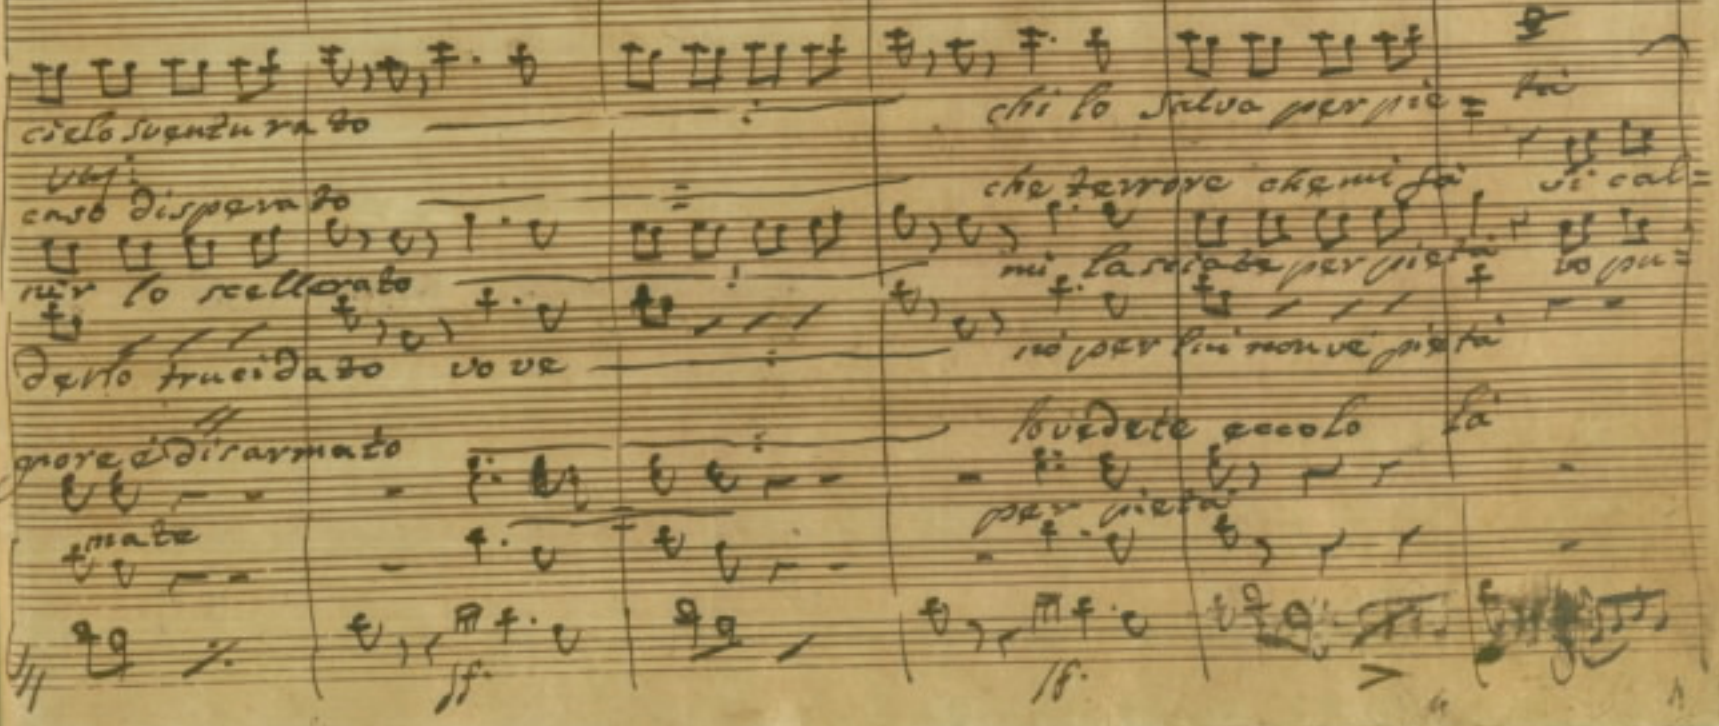 cielo sventurato chi lo salva per pie = tà
unj:
caso disperato che terrore che mi fà vi cal=
nir lo scellerato mi lasciate per pietà vo pu=
derlo trucidato vo ve nò per lui non vè pietà
gnore è disarmato lo vedete eccolo là
mate per pietà
sf. sf.